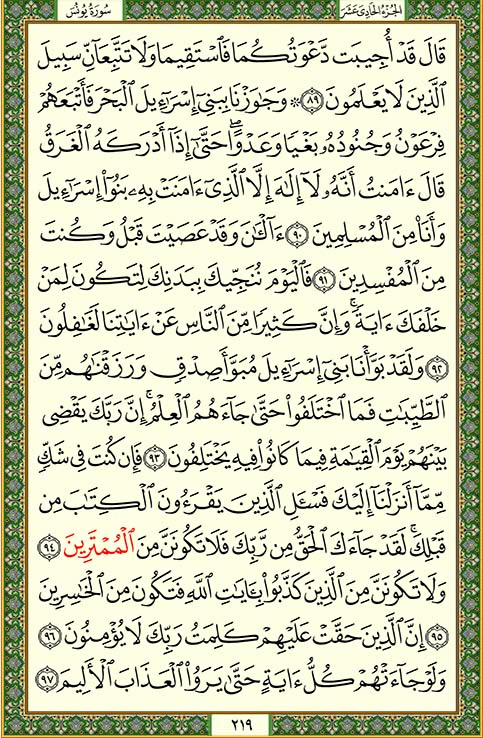 الجزء الحادي عشر
سورة يونس
قَالَ قَدْ أُجِيبَت دَّعْوَتُكُمَا فَٱسْتَقِيمَا وَلَا تَتَّبِعَآنِّ سَبِيلَ
ٱلَّذِينَ لَا يَعْلَمُونَ ٨٩ ۞ وَجَٰوَزْنَا بِبَنِىٓ إِسْرَٰٓءِيلَ ٱلْبَحْرَ فَأَتْبَعَهُمْ
فِرْعَوْنُ وَجُنُودُهُۥ بَغْيًا وَعَدْوًا ۖ حَتَّىٰٓ إِذَآ أَدْرَكَهُ ٱلْغَرَقُ
قَالَ ءَامَنتُ أَنَّهُۥ لَآ إِلَٰهَ إِلَّا ٱلَّذِىٓ ءَامَنَتْ بِهِۦ بَنُوٓا۟ إِسْرَٰٓءِيلَ
وَأَنَا۠ مِنَ ٱلْمُسْلِمِينَ ٩٠ ءَآلْـَٰٔنَ وَقَدْ عَصَيْتَ قَبْلُ وَكُنتَ
مِنَ ٱلْمُفْسِدِينَ ٩١ فَٱلْيَوْمَ نُنَجِّيكَ بِبَدَنِكَ لِتَكُونَ لِمَنْ
خَلْفَكَ ءَايَةً ۚ وَإِنَّ كَثِيرًا مِّنَ ٱلنَّاسِ عَنْ ءَايَٰتِنَا لَغَٰفِلُونَ
٩٢ وَلَقَدْ بَوَّأْنَا بَنِىٓ إِسْرَٰٓءِيلَ مُبَوَّأَ صِدْقٍ وَرَزَقْنَٰهُم مِّنَ
ٱلطَّيِّبَٰتِ فَمَا ٱخْتَلَفُوا۟ حَتَّىٰ جَآءَهُمُ ٱلْعِلْمُ ۚ إِنَّ رَبَّكَ يَقْضِى
بَيْنَهُمْ يَوْمَ ٱلْقِيَٰمَةِ فِيمَا كَانُوا۟ فِيهِ يَخْتَلِفُونَ ٩٣ فَإِن كُنتَ فِى شَكٍّ
مِّمَّآ أَنزَلْنَآ إِلَيْكَ فَسْـَٔلِ ٱلَّذِينَ يَقْرَءُونَ ٱلْكِتَٰبَ مِن
قَبْلِكَ ۚ لَقَدْ جَآءَكَ ٱلْحَقُّ مِن رَّبِّكَ فَلَا تَكُونَنَّ مِنَ ٱلْمُمْتَرِينَ ٩٤
وَلَا تَكُونَنَّ مِنَ ٱلَّذِينَ كَذَّبُوا۟ بِـَٔايَٰتِ ٱللَّهِ فَتَكُونَ مِنَ ٱلْخَٰسِرِينَ
٩٥ إِنَّ ٱلَّذِينَ حَقَّتْ عَلَيْهِمْ كَلِمَتُ رَبِّكَ لَا يُؤْمِنُونَ ٩٦
وَلَوْ جَآءَتْهُمْ كُلُّ ءَايَةٍ حَتَّىٰ يَرَوُا۟ ٱلْعَذَابَ ٱلْأَلِيمَ ٩٧
٢١٩